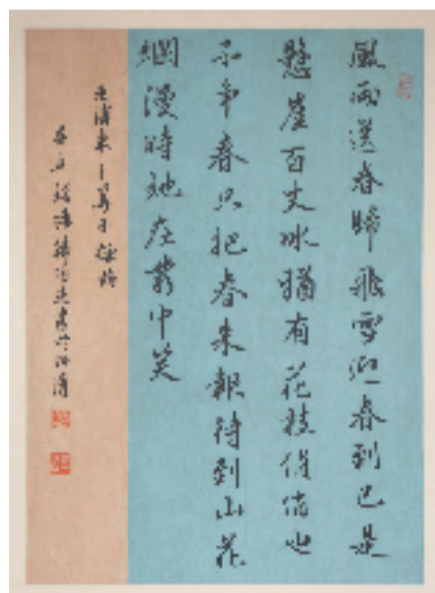 風雨送春歸飛雪迎春到已是
懸崖百丈冰猶有花枝俏俏也
不爭春只把春來報待到山花
爛漫時她在叢中笑
毛澤東卜算子詠梅